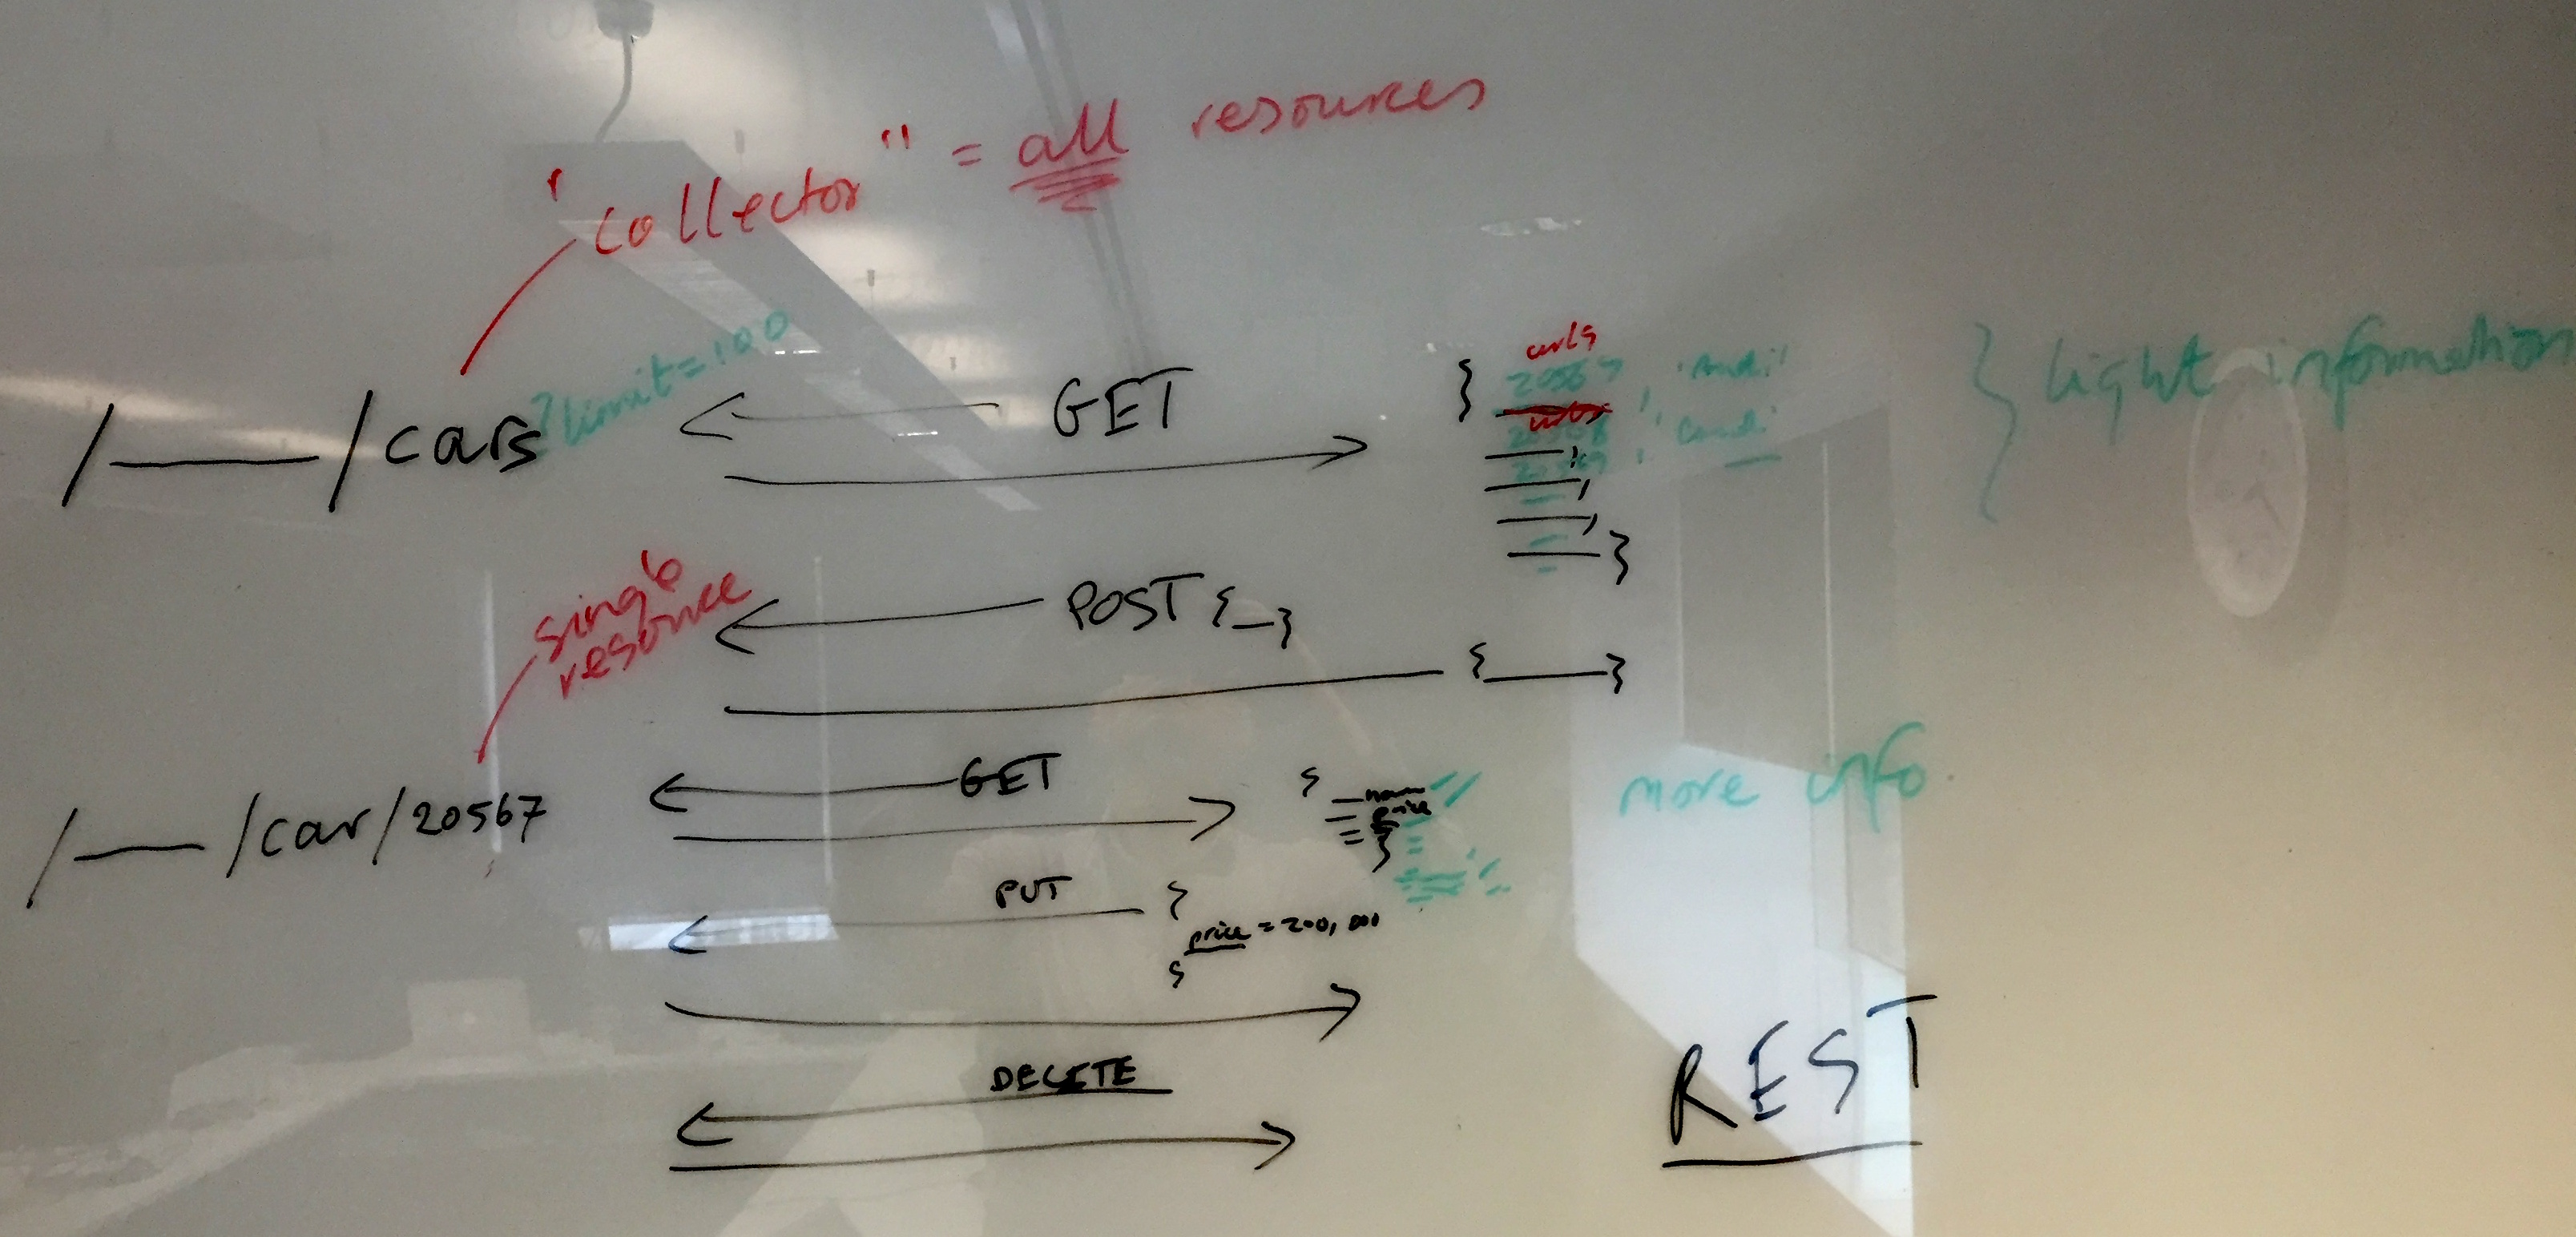 "collector" = all resources
/___/cars?limit=100
GET
urls
20567, 'Audi'
urls
light information
single
resource
POST {_}
{___}
/___/car/20567
GET
{
name
price
}
more info
PUT {
price = 200,000
}
DELETE
REST